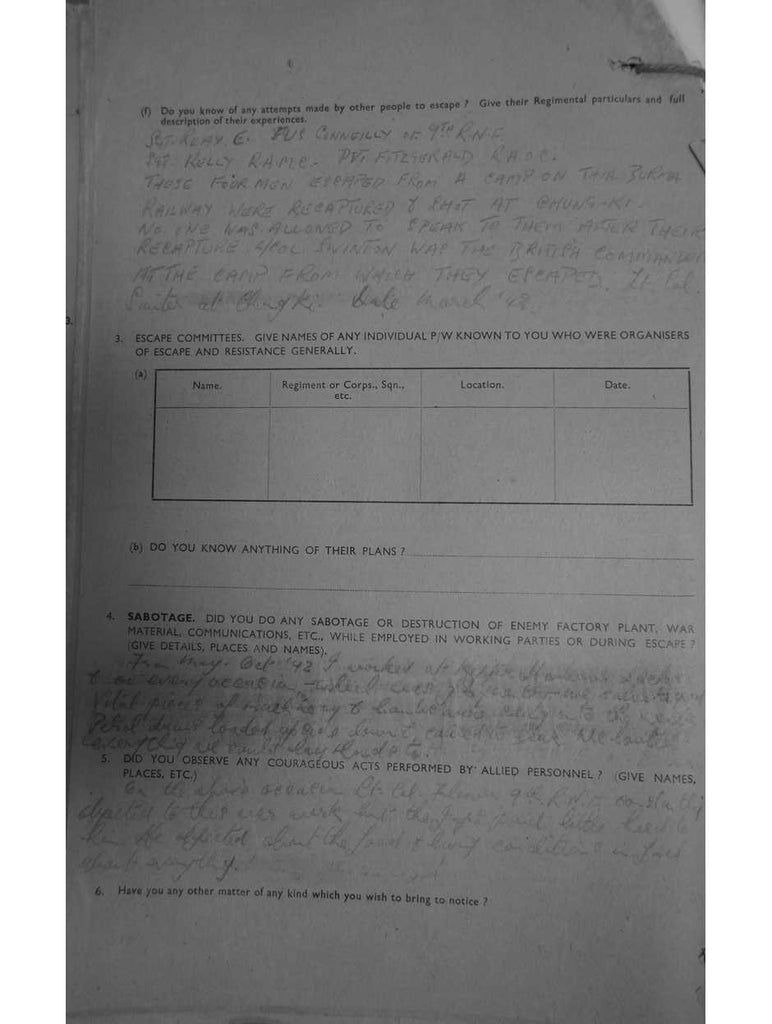 (f) Do you know of any attempts made by other people to escape ? Give their Regimental particulars and full
description of their experiences.
SGT. REAY. E. FUS CONNEILLY OF 9TH R.N.F.
SGT. KELLY R.A.M.C. PVT. FITZGERALD R.A.O.C.
THESE FOUR MEN ESCAPED FROM A CAMP ON THAI BURMA
RAILWAY WERE RECAPTURED & SHOT AT CHUNG-KI.
NO ONE WAS ALLOWED TO SPEAK TO THEM AFTER THEIR
RECAPTURE. L/COL SWINTON WAS THE BRITISH COMMANDER
AT THE CAMP FROM WHICH THEY ESCAPED. Lt. Col.
at Chung Ki. Date March '43.
3.
3. ESCAPE COMMITTEES. GIVE NAMES OF ANY INDIVIDUAL P/W KNOWN TO YOU WHO WERE ORGANISERS
OF ESCAPE AND RESISTANCE GENERALLY.
(a)
Name. Regiment or Corps., Sqn., Location. Date.
etc.
(b) DO YOU KNOW ANYTHING OF THEIR PLANS ?
4. SABOTAGE. DID YOU DO ANY SABOTAGE OR DESTRUCTION OF ENEMY FACTORY PLANT, WAR
MATERIAL, COMMUNICATIONS, ETC., WHILE EMPLOYED IN WORKING PARTIES OR DURING ESCAPE ?
(GIVE DETAILS, PLACES AND NAMES).
From May - Oct '42 I worked at
& on every occasion
Vital pieces of machinery
Petrol drums loaded upside down, We
everything we could lay hands to.
5. DID YOU OBSERVE ANY COURAGEOUS ACTS PERFORMED BY ALLIED PERSONNEL ? (GIVE NAMES,
PLACES, ETC.)
On the above occasion Lt. Col. 9th R.N.F. constantly
objected to this war work, but the paid little heed to
him. He objected about the food & living conditions in fact
about everything.
6. Have you any other matter of any kind which you wish to bring to notice ?